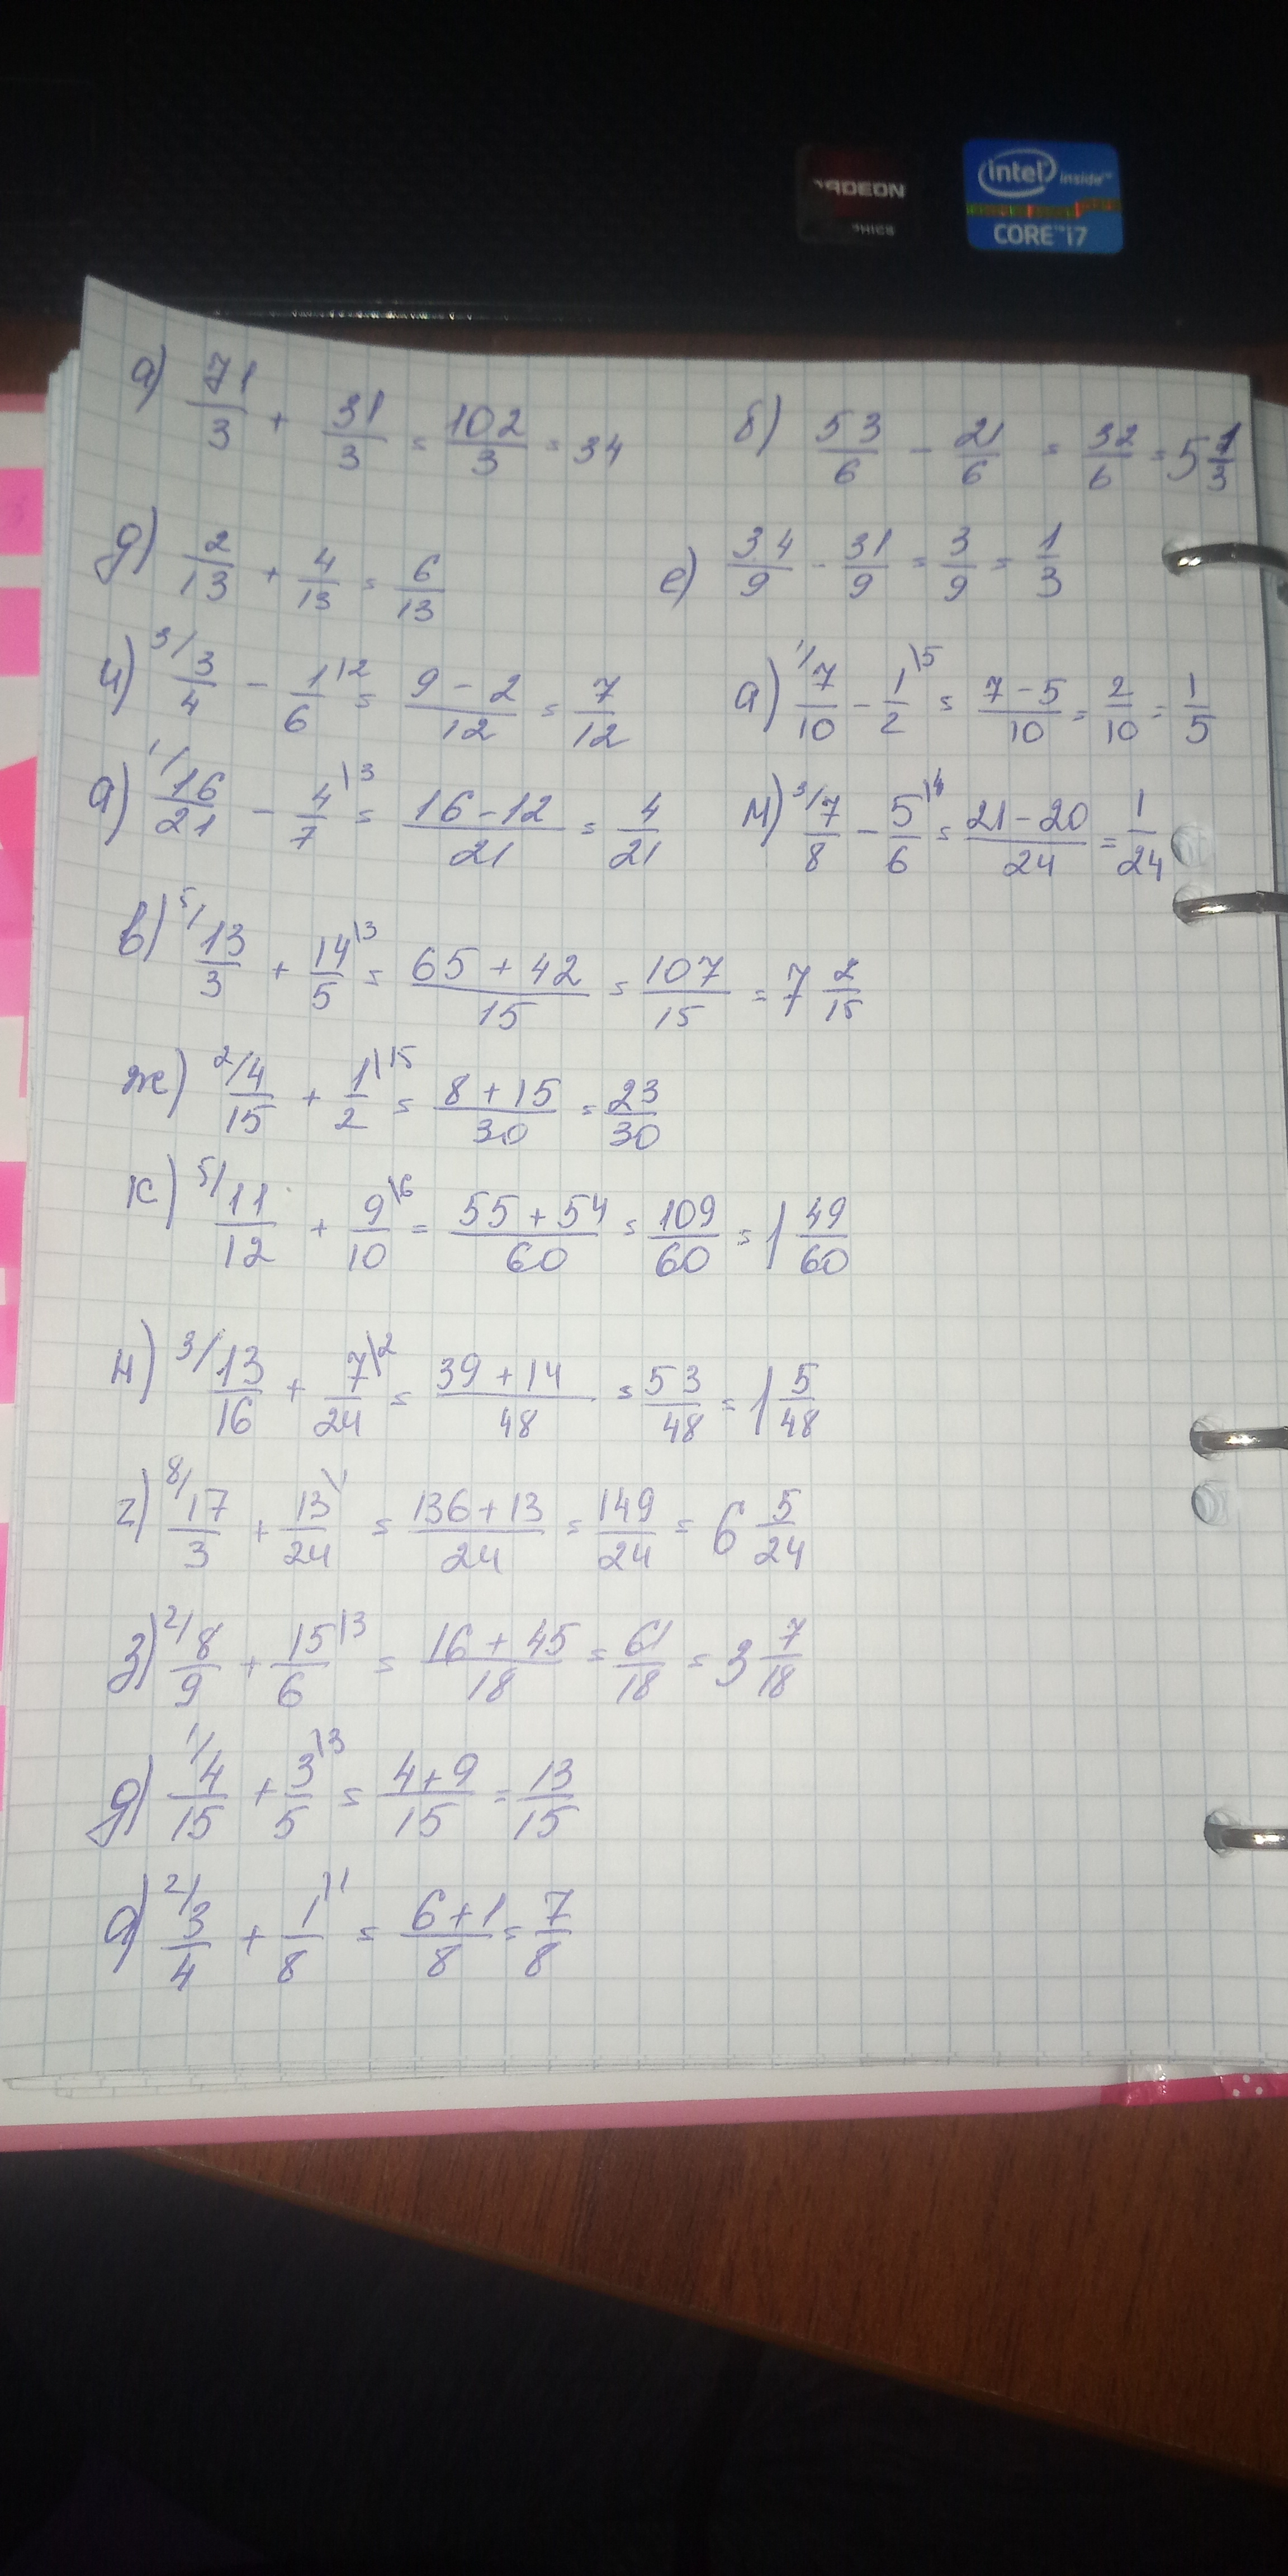 RADEON
intel inside™
CORE™ i7
а) 71/3 + 31/3 = 102/3 = 34
б) 53/6 - 21/6 = 32/6 = 5 1/3
д) 2/13 + 4/13 = 6/13
е) 34/9 - 31/9 = 3/9 = 1/3
и) 3/ 3/4 - 1/6 \2 = (9 - 2)/12 = 7/12
а) 1/ 7/10 - 1/2 \5 = (7 - 5)/10 = 2/10 = 1/5
а) 1/ 16/21 - 4/7 \3 = (16 - 12)/21 = 4/21
м) 3/ 7/8 - 5/6 \4 = (21 - 20)/24 = 1/24
в) 5/ 13/3 + 14/5 \3 = (65 + 42)/15 = 107/15 = 7 2/15
ж) 2/ 4/15 + 1/2 \15 = (8 + 15)/30 = 23/30
к) 5/ 11/12 + 9/10 \6 = (55 + 54)/60 = 109/60 = 1 49/60
н) 3/ 13/16 + 7/24 \2 = (39 + 14)/48 = 53/48 = 1 5/48
г) 8/ 17/3 + 13/24 \1 = (136 + 13)/24 = 149/24 = 6 5/24
з) 2/ 8/9 + 15/6 \3 = (16 + 45)/18 = 61/18 = 3 7/18
д) 1/ 4/15 + 3/5 \3 = (4 + 9)/15 = 13/15
а) 2/ 3/4 + 1/8 \1 = (6 + 1)/8 = 7/8